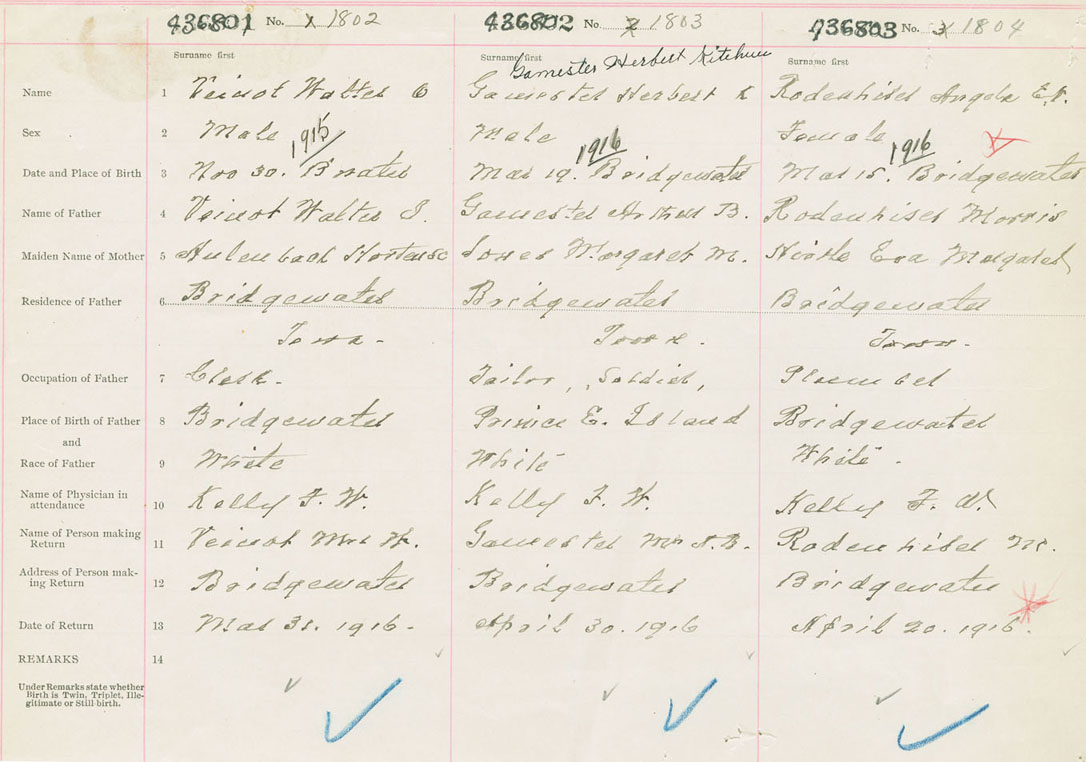 436801 No. 1 1802 436802 No. 2 1803 436803 No. 3 1804
Surname first Surname first Surname first
Gamester Herbert Kitchner
Name 1 Veinot Walter C Gamester Herbert K Rodenhiser Angela E.
Sex 2 Male Male Female
1915 1916 1916
Date and Place of Birth 3 Nov 30. B water Mar 19. Bridgewater Mar 15. Bridgewater
Name of Father 4 Veinot Walter J. Gamester Arthur B. Rodenhiser Morris
Maiden Name of Mother 5 Aulenback Hortense Jones Margaret M. Hirtle Eva Margaret
Residence of Father 6 Bridgewater Bridgewater Bridgewater
Town - Town . Town -
Occupation of Father 7 Clerk - Tailor, Soldier, Plumber
Place of Birth of Father 8 Bridgewater Prince E. Island Bridgewater
and
Race of Father 9 White White White -
Name of Physician in
attendance 10 Kelly F. W. Kelly F. W. Kelly F. W.
Name of Person making
Return 11 Veinot Mrs W. Gamester Mrs A.B. Rodenhiser M.
Address of Person mak-
ing Return 12 Bridgewater Bridgewater Bridgewater
Date of Return 13 Mar 31. 1916 - April 30. 1916 April 20. 1916.
REMARKS 14
Under Remarks state whether
Birth is Twin, Triplet, Ille-
gitimate or Still-birth.